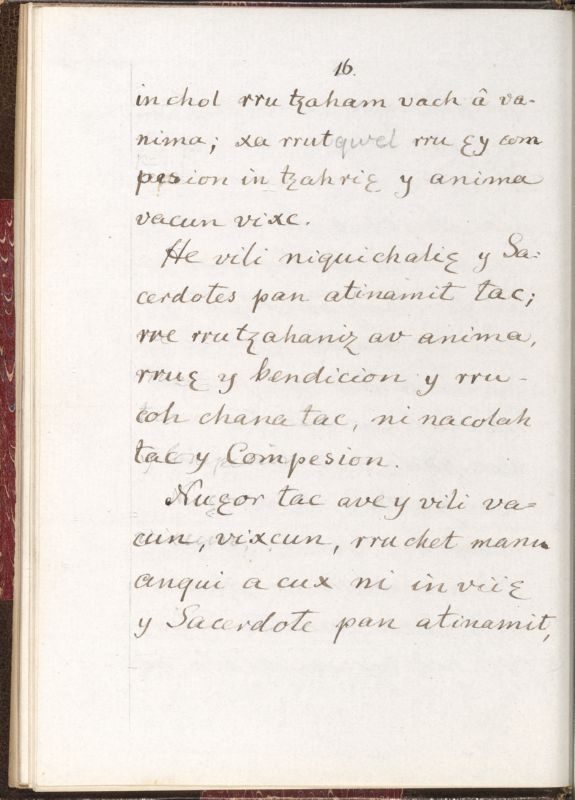 16.
in chol rru tꜩaham vach â va-
nima; xa rrutqwel rru ꜫy com
pesion in tꜩahriꜫ y anima
vacun vixc.
He vili niquichaliꜫ y Sa:
cerdotes pan atinamit tac;
rre rrutꜩahaniz av anima,
rruꜫ y bendicion y rru-
coh chana tac, ni nacolah
tac y Compesion.
Nuꜫor tac ave y vili va=
cun, vixcun, rruchet manu
anqui a cux ni in viiꜫ
y Sacerdote pan atinamit,